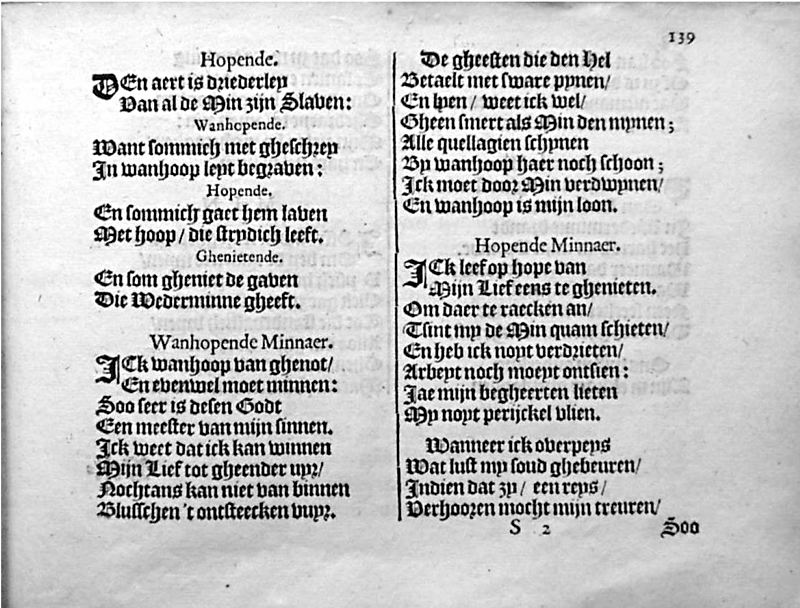 139
Hopende.
DEn aert is driederley
Van al de Min zijn Slaven:
Wanhopende.
Want sommich met gheschrey
In wanhoop leyt begraven:
Hopende.
En sommich gaet hem laven
Met hoop / die strydich leeft.
Ghenietende.
En som gheniet de gaven
Die Wederminne gheeft.
Wanhopende Minnaer.
ICk wanhoop van ghenot /
En evenwel moet minnen:
Soo seer is desen Godt
Een meester van mijn sinnen.
Ick weet dat ick kan winnen
Mijn Lief tot gheender uyr /
Nochtans kan niet van binnen
Blusschen 't ontsteecken vuyr.
De gheesten die den Hel
Betaelt met sware pynen /
En lyen / weet ick wel /
Gheen smert als Min den mynen;
Alle quellagien schynen
By wanhoop haer noch schoon;
Ick moet door Min verdwynen /
En wanhoop is mijn loon.
Hopende Minnaer.
ICk leef op hope van
Mijn Lief eens te ghenieten.
Om daer te raecken an /
Tsint my de Min quam schieten /
En heb ick noyt verdrieten /
Arbeyt noch moeyt ontsien:
Jae mijn begheerten lieten
My noyt perijckel vlien.
Wanneer ick overpeys
Wat lust my soud ghebeuren /
Indien dat zy / een reys /
Verhooren mocht mijn treuren /
S 2
Soo